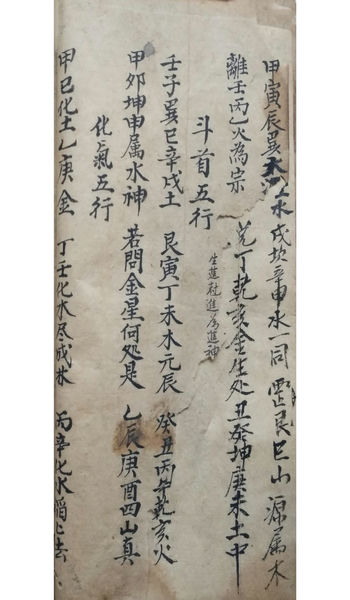 甲寅辰巽大水戌坎辛申水一同 震艮巳山源属木
離壬丙乙火為宗 兑丁乾亥金生处丑癸坤庚未土中
斗首五行 生進尅進为進神
壬子巽巳辛戌土 艮寅丁未木元辰 癸丑丙午乾亥火
甲卯坤申属水神 若問金星何処是 乙辰庚酉四山真
化氣五行
甲巳化土乙庚金 丁壬化木尽成林 丙辛化水滔上去